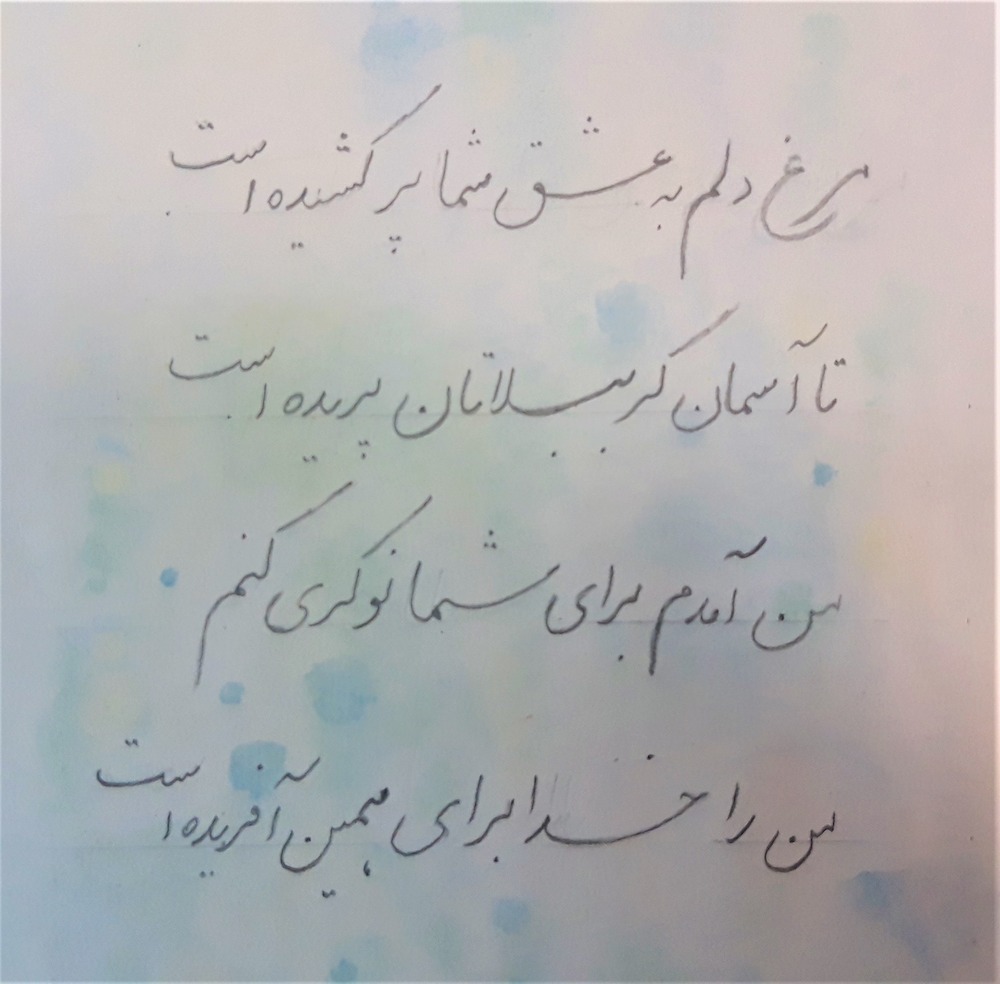 مرغ دلم به عشق شما پر کشیده است
تا آسمان کرببلاتان پریده است
من آمدم برای شما نوکری کنم
من را خدا برای همین آفریده است